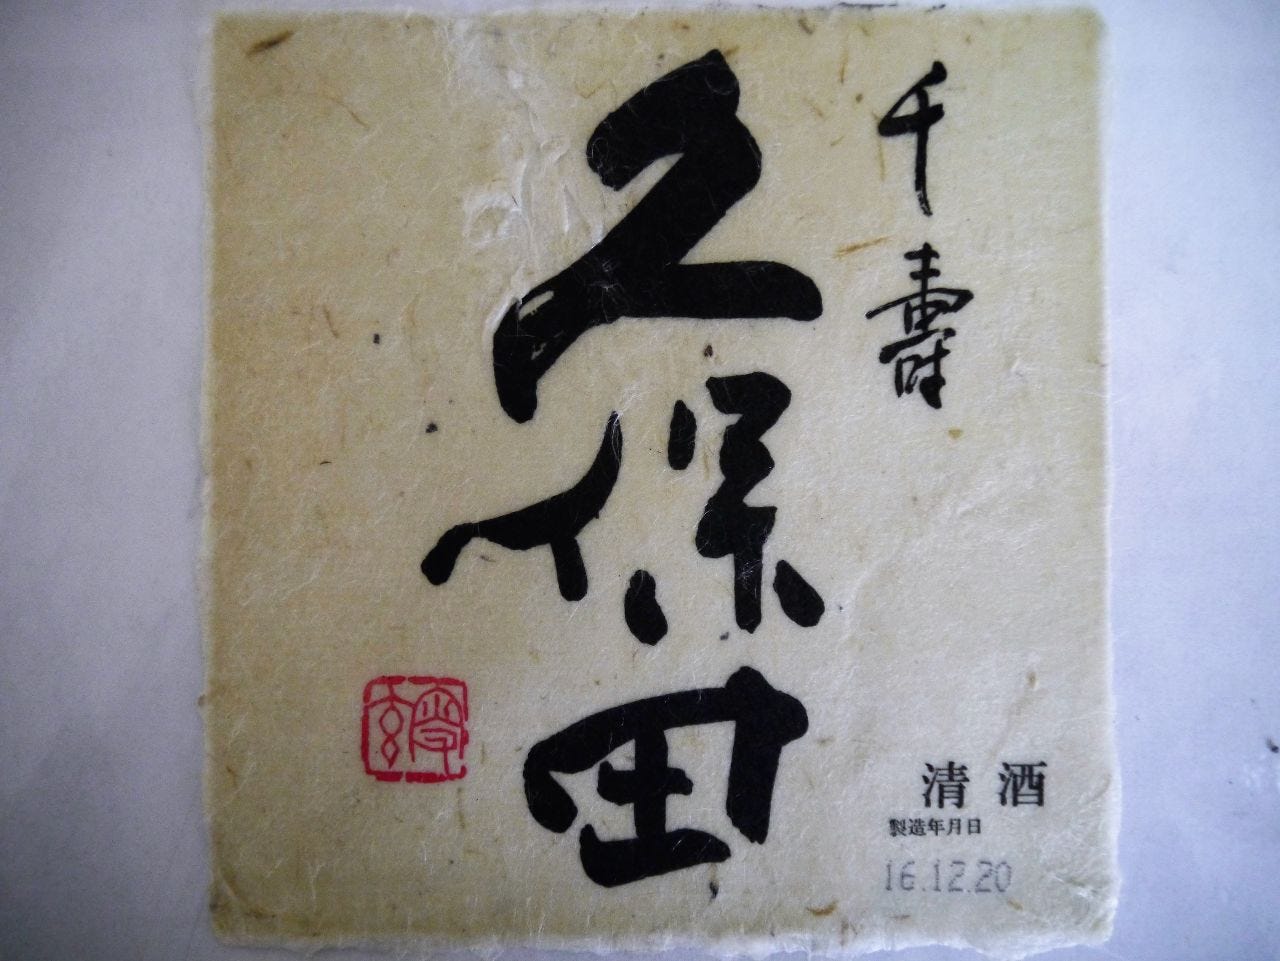 千壽
久保田
清酒
製造年月日
16.12.20